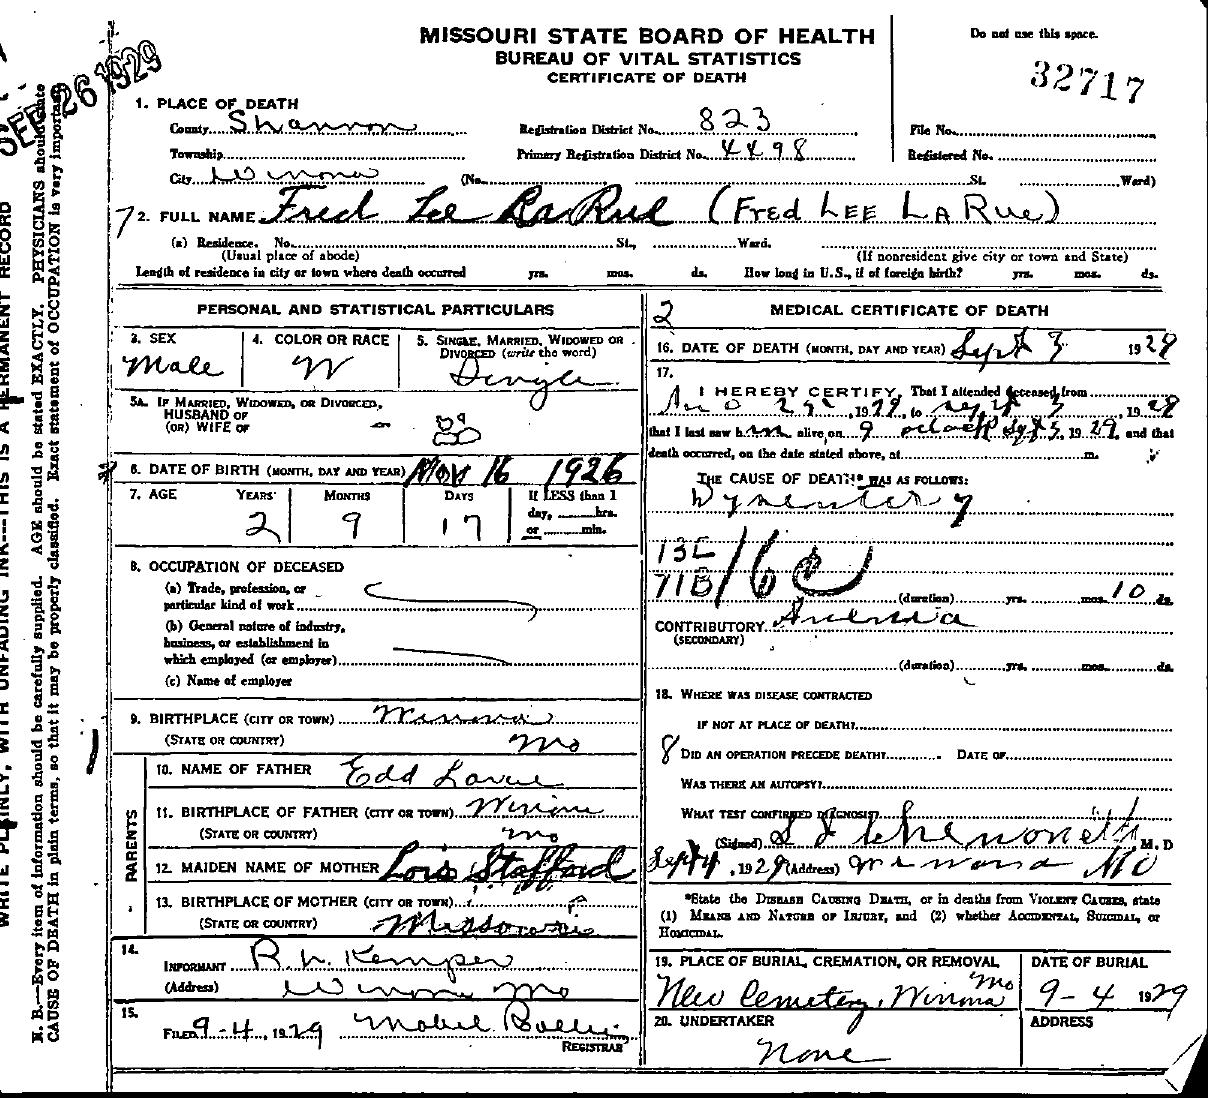 MISSOURI STATE BOARD OF HEALTH
BUREAU OF VITAL STATISTICS
CERTIFICATE OF DEATH
Do not use this space.
32717
SEP 26 1929
1. PLACE OF DEATH
County Shannon Registration District No. 823 File No.
Township Primary Registration District No. 4498 Registered No.
City Winona (No. St. Ward)
2. FULL NAME Fred Lee LaRue (FRED LEE LA RUE)
(a) Residence. No. St., Ward.
(Usual place of abode) (If nonresident give city or town and State)
Length of residence in city or town where death occurred yrs. mos. ds. How long in U.S., if of foreign birth? yrs. mos. ds.
PERSONAL AND STATISTICAL PARTICULARS
3. SEX 4. COLOR OR RACE 5. SINGLE, MARRIED, WIDOWED OR DIVORCED (write the word)
Male W Single
5A. IF MARRIED, WIDOWED, OR DIVORCED,
HUSBAND OF
(OR) WIFE OF
6. DATE OF BIRTH (MONTH, DAY AND YEAR) Nov 16 1926
7. AGE YEARS MONTHS DAYS If LESS than 1
day, hrs.
or min.
2 9 17
8. OCCUPATION OF DECEASED
(a) Trade, profession, or
particular kind of work
(b) General nature of industry,
business, or establishment in
which employed (or employer)
(c) Name of employer
9. BIRTHPLACE (CITY OR TOWN) Winona
(STATE OR COUNTRY) Mo
PARENTS
10. NAME OF FATHER Edd Larue
11. BIRTHPLACE OF FATHER (CITY OR TOWN) Winona
(STATE OR COUNTRY) Mo
12. MAIDEN NAME OF MOTHER Lois Stafford
13. BIRTHPLACE OF MOTHER (CITY OR TOWN)
(STATE OR COUNTRY) Missouri
14.
INFORMANT R. W. Kemper
(Address) Winona Mo
15.
FILED 9-4, 1929 Mabel
REGISTRAR
2
MEDICAL CERTIFICATE OF DEATH
16. DATE OF DEATH (MONTH, DAY AND YEAR) Sept 3 1929
17.
I HEREBY CERTIFY, That I attended deceased from
1929, to Sept 3, 1929
that I last saw him alive on 9 oclock Sept 3, 1929, and that
death occurred, on the date stated above, at m.
THE CAUSE OF DEATH* WAS AS FOLLOWS:
Dysentery
13E
71B 16c
(duration) yrs. mos. 10 ds.
CONTRIBUTORY Anemia
(SECONDARY)
(duration) yrs. mos. ds.
18. WHERE WAS DISEASE CONTRACTED
IF NOT AT PLACE OF DEATH?
8 DID AN OPERATION PRECEDE DEATH? DATE OF
WAS THERE AN AUTOPSY?
WHAT TEST CONFIRMED DIAGNOSIS?
(Signed) M. D
Sept 4, 1929 (Address) Winona Mo
*State the DISEASE CAUSING DEATH, or in deaths from VIOLENT CAUSES, state
(1) MEANS AND NATURE OF INJURY, and (2) whether ACCIDENTAL, SUICIDAL, or
HOMICIDAL.
19. PLACE OF BURIAL, CREMATION, OR REMOVAL DATE OF BURIAL
New Cemetery, Winona Mo 9-4 1929
20. UNDERTAKER ADDRESS
None
WRITE PLAINLY, WITH UNFADING INK---THIS IS A PERMANENT RECORD
N. B.—Every item of information should be carefully supplied. AGE should be stated EXACTLY. PHYSICIANS should state
CAUSE OF DEATH in plain terms, so that it may be properly classified. Exact statement of OCCUPATION is very important.